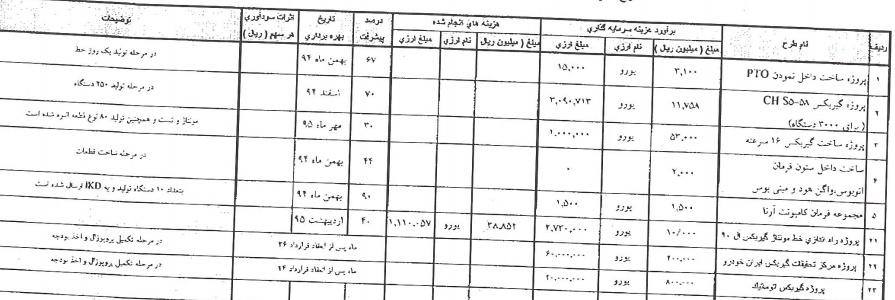 ردیف نام طرح برآورد هزینه سرمایه گذاری هزینه های انجام شده درصد پیشرفت تاریخ بهره برداری اثرات سودآوری هر سهم ( ریال ) توضیحات
مبلغ ( میلیون ریال ) نام ارزی مبلغ ارزی مبلغ ( میلیون ریال نام ارزی مبلغ ارزی
۱ پروژه ساخت داخل نمودن PTO ۳,۱۰۰ یورو ۱۵,۰۰۰ ۶۷ بهمن ماه ۹۴ در مرحله تولید یک روز خط
۲ پروژه گیربکس CH S۵-۵۸ ۱۱,۷۵۸ یورو ۳,۰۹۰,۷۱۳ ۷۰ اسفند ۹۴ در مرحله تولید ۲۵۰ دستگاه
( برای ۳۰۰۰ دستگاه)
۳ پروژه ساخت گیربکس ۱۶ سرعته ۵۳,۰۰۰ یورو ۱,۰۰۰,۰۰۰ ۳۰ مهر ماه ۹۵ مونتاژ و تست و همچنین تولید ۸۰ نوع قطعه انبوه شده است
۴ ساخت داخل ستون فرمان ۲,۰۰۰ ۰ ۴۴ بهمن ماه ۹۴ در مرحله ساخت قطعات
اتوبوس،واگن هود و مینی بوس
۵ مجموعه فرمان کامیونت آرنا ۱,۵۰۰ یورو ۱,۵۰۰ ۹۰ بهمن ماه ۹۴ بتعداد ۱۰ دستگاه تولید و به IKD ارسال شده است
۲۱ پروژه راه اندازی خط مونتاژ گیربکس ال ۹۰ ۱۰/۰۰۰ یورو ۲,۷۳۰,۰۰۰ ۳۸,۸۵۲ یورو ۱,۱۱۰,۰۵۷ ۴۰ اردیبهشت ۹۵
۲۲ پروژه مرکز تحقیقات گیربکس ایران خودرو ۲۰۰,۰۰۰ یورو ۶۰,۰۰۰,۰۰۰ ۳۶ ماه پس از انعقاد قرارداد در مرحله تکمیل پروپوزال و اخذ بودجه
۲۳ پروژه گیربکس اتوماتیک ۸۰۰,۰۰۰ یورو ۲۰,۰۰۰,۰۰۰ ۲۴ ماه پس از انعقاد قرارداد در مرحله تکمیل پروپوزال و اخذ بودجه